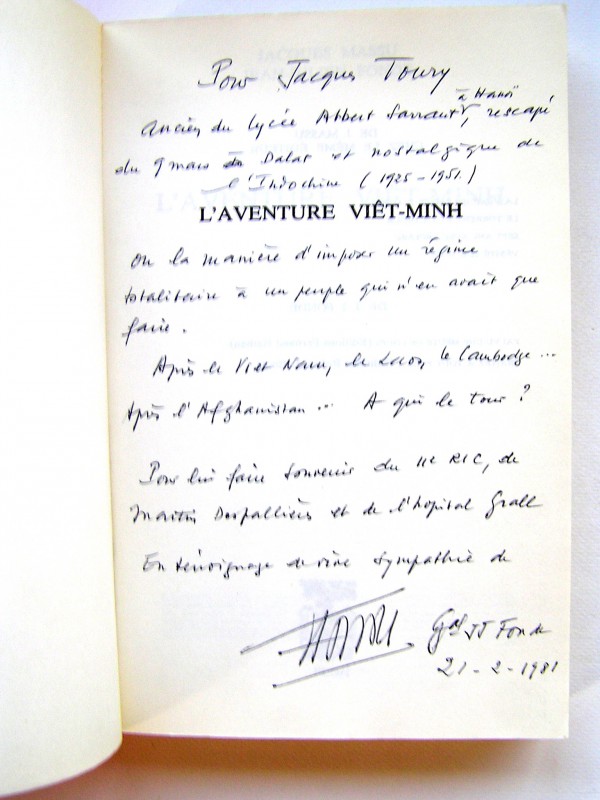 Pour Jacques Toury
à Hanoï
ancien du lycée Albert Sarraut, rescapé
du 9 mars à Dalat et nostalgique de
l'Indochine (1925-1951)
L'AVENTURE VIÊT-MINH
ou la manière d'imposer un régime
totalitaire à un peuple qui n'en avait que
faire.
Après le Viet Nam, le Laos, le Cambodge...
Après l'Afghanistan... A qui le tour ?
Pour lui faire souvenir du 11e RIC, de
Martin Despallières et de l'hôpital Grall
En témoignage de vive sympathie de
Gal JJ Fonde
21-2-1981